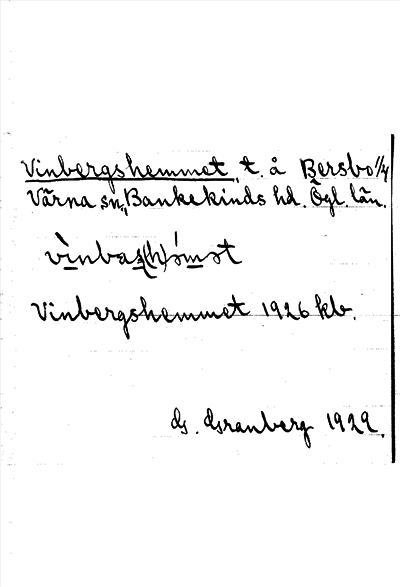 Vinbergshemmet, t. å Bersbo 1/4
Värna sn., Bankekinds hd. Ögl. län.
Vinbergshemmet 1926 kb.
G. Granberg 1929.